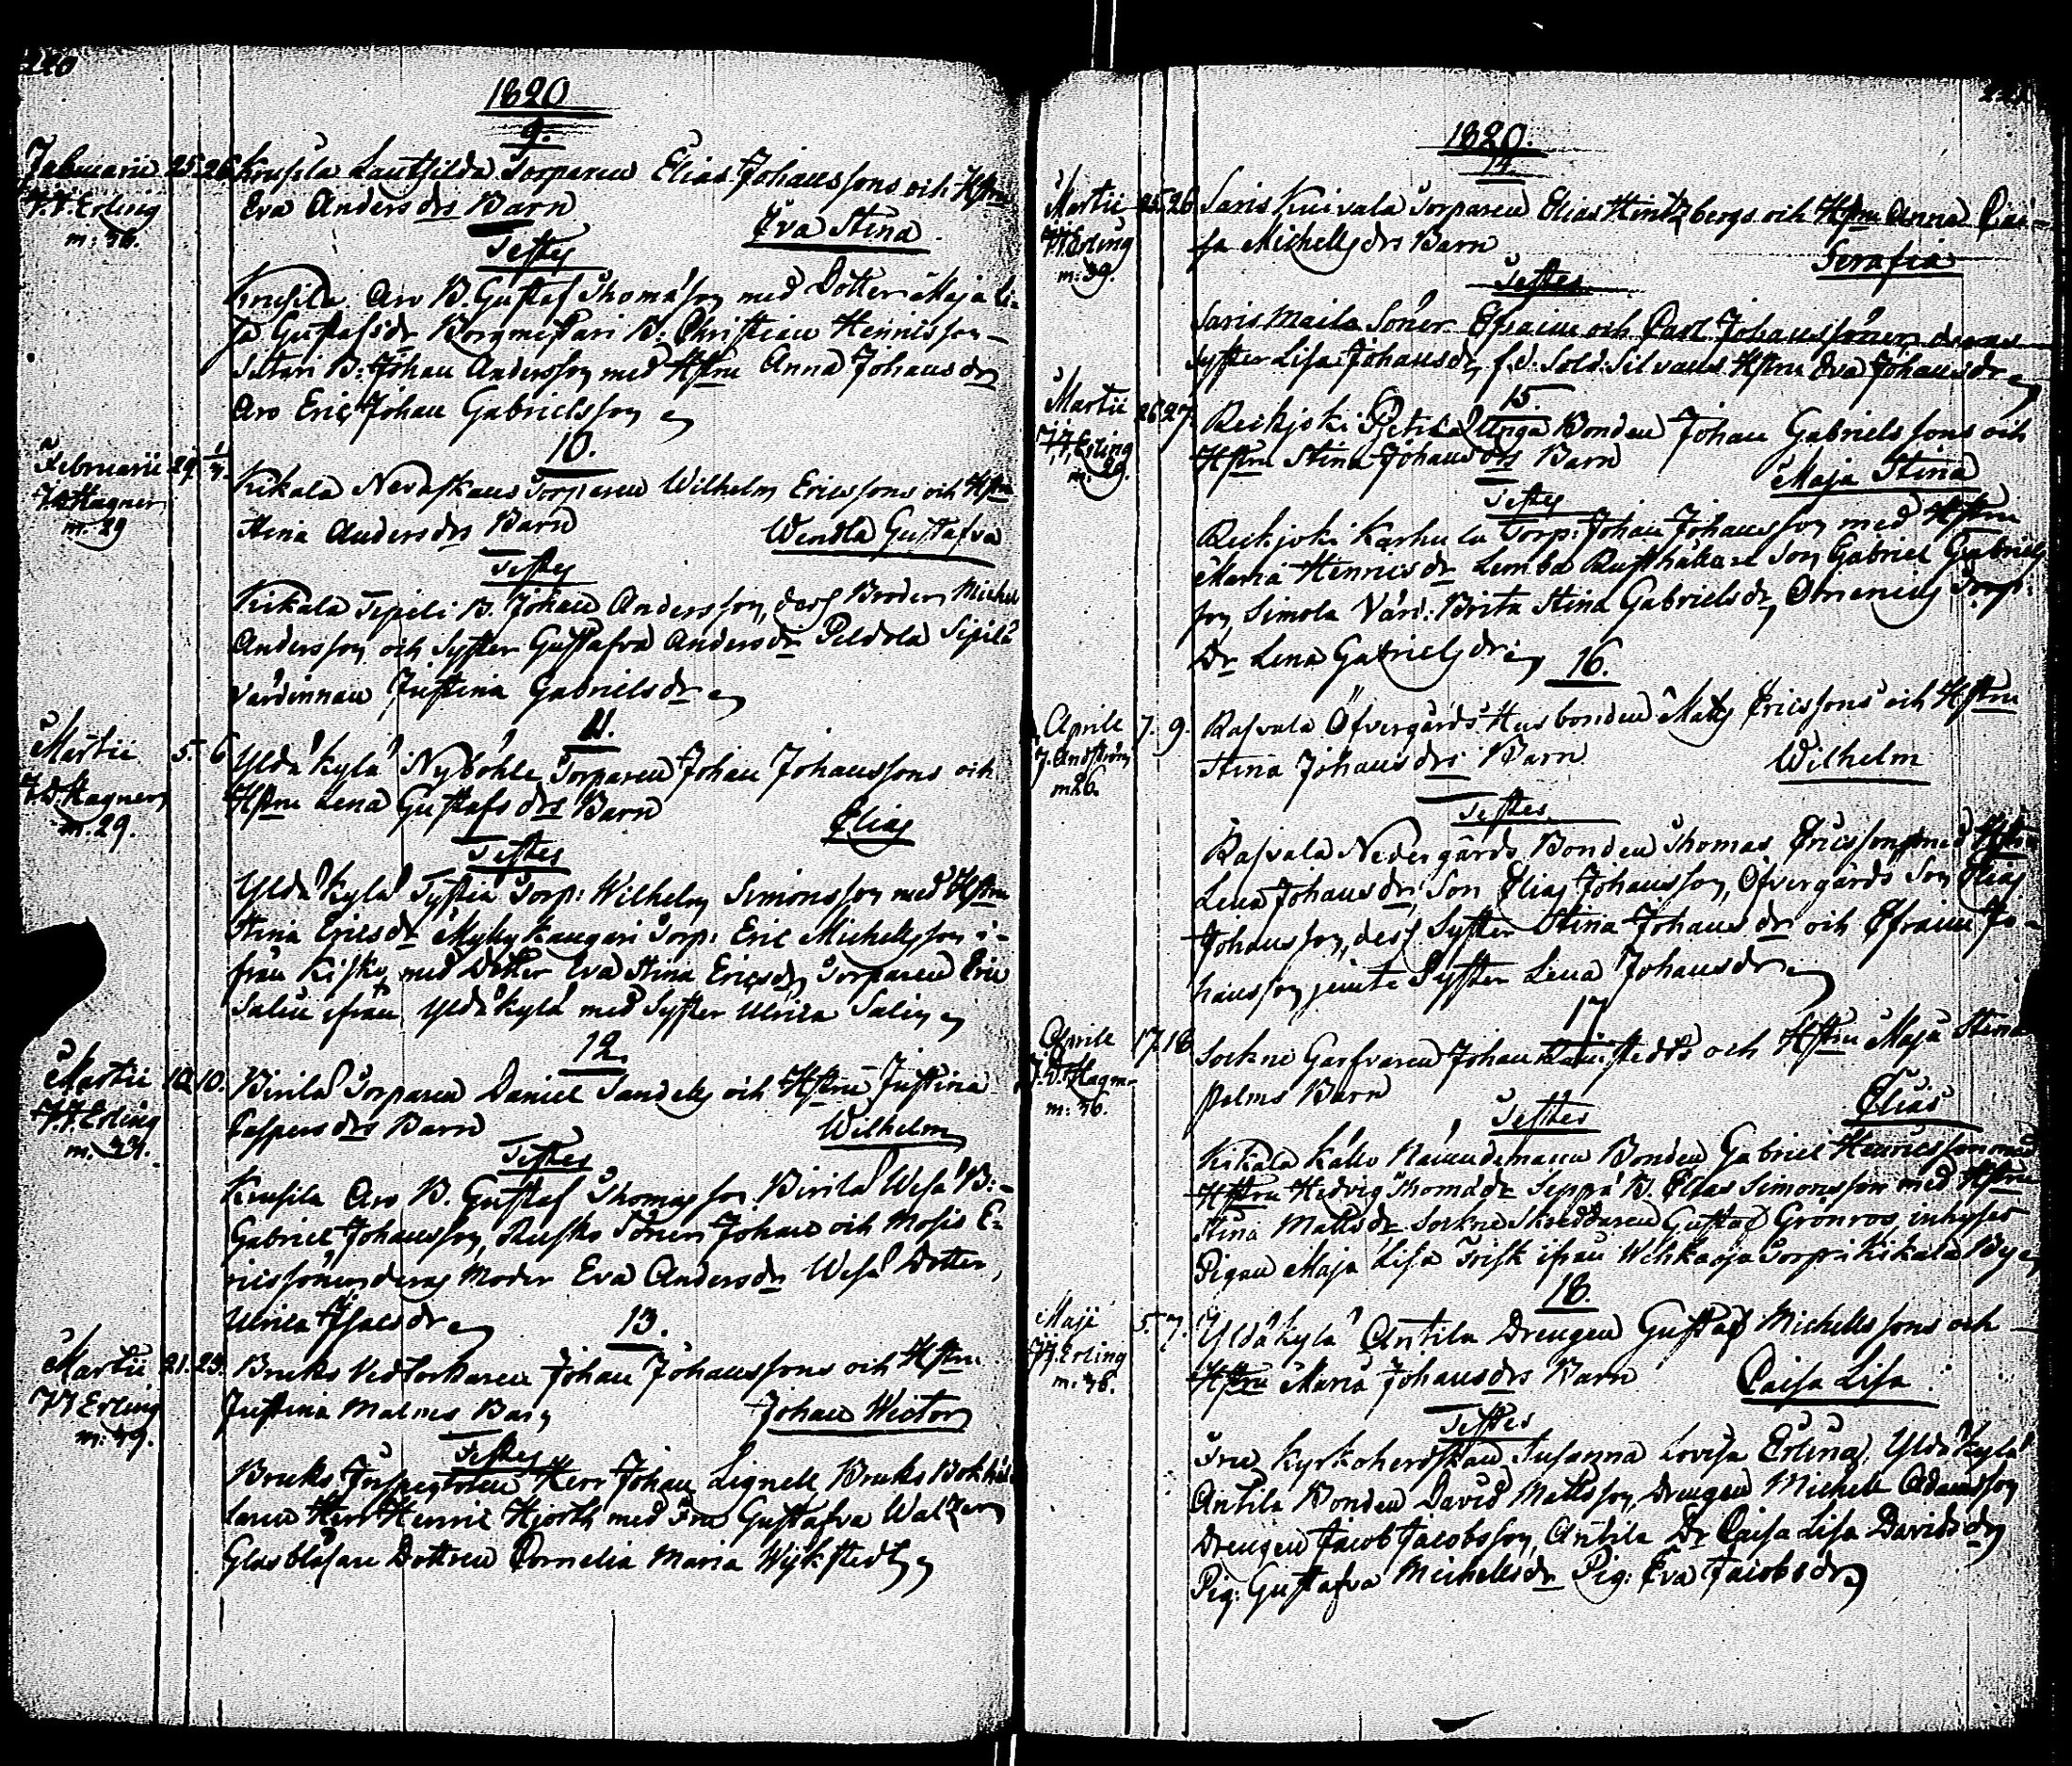 220
1820
9.
Januarii 25. 26. Krusila Torparen Elias Johanssons och Hstru
J.J. Erling Eva Anders drs Barn
m: 36. Eva Stina
Testes
Krusila Aro B. Gustaf Thomasson med Dotter Maja Li-
sa Gustafsdr Borgmestari B. Christian Henricsson
B: Johan Andersson med Hstru Anna Johansdr
Aro Eric Johan Gabrielsson
10.
Februarii 29. 1/3. Kikala Torparen Wilhelm Ericssons och Hstru
Stina Anders drs Barn Wendla Gustafva
m. 29
Testes
Kikala Sipili B. Johan Andersson, dess Broder Michel
Andersson och Syster Gustafva Andersdr Peldola Sipilä
Värdinnan Justina Gabrielsdr
11.
Martii 5. 6 Yldäkylä Nyböhle Torparen Johan Johanssons och
Hstru Lena Gustafs drs Barn
m. 29. Elias
Testes
Yldäkylä Torp: Wilhelm Simonsson med Hstru
Stina Ericsdr Torp: Eric Michelsson i-
från Kisko, med Dotter Eva Stina Ericsdr Torparen Eric
Salin ifrån Yldäkylä med Syster Ulrica Salin
12.
Martii 10. 10. Birila Torparen Daniel Sandels och Hstru Justina
J.J. Erling Caspers drs Barn Wilhelm
Testes
Krusila Aro B. Gustaf Thomasson Birila Wesa B:
Gabriel Johansson, Rusko Söner Johan och Mosis E-
ricssöner deras Moder Eva Andersdr Wesa Dotter
Ulrica Isacsdr
13.
Martii 21. 23. Bruks Vedtorkaren Johan Johanssons och Hstru
J J Erling Justina Malms Barn Johan Wictor
m. 39.
Testes
Bruks Inspectoren Herr Johan Lignell Bruks Bokhål-
laren Herr Henric Hjorth med Fru Gustafva Walzer
Glasblåsare Dottren Cornelia Maria Wijkstedt
221
1820.
14.
Martii 25. 26 Saris Kuivala Torparen Elias Hintzbergs och Hstru Anna Cai-
J.J. Erling sa Michells drs Barn Serafia
m: 39.
Testes
Saris Maila Söner Efraim och Carl Johanssöner deras
Syster Lisa Johansdr, f.d. Sold. Silvans Hstru Eva Johansdr
15.
Martii 26 27. Reikjoki Pietila Unga Bonden Johan Gabrielssons och
J.J. Erling Hstru Stina Johans drs Barn Maja Stina
m: 29.
Testes
Reikjoki Karhula Torp: Johan Johansson med Hstru
Maria Henricsdr Lemba Rusthållare Son Gabriel Gabriels
son, Simola Värd: Brita Stina Gabrielsdr, Torp:
Dr Lena Gabrielsdr
16.
Aprile 7. 9. Rasvala Öfvergårds Husbonden Matts Ericssons och Hstru
Stina Johans drs Barn Wilhelm
m26.
Testes
Rasvala Nedergårds Bonden Thomas Ericsson med Hstru
Lena Johansdr, Son Elias Johansson, Öfvergårds Son Elias
Johansson, dess Syster Stina Johans dr och Efraim Jo-
hansson jemte Syster Lena Johansdr
17
Aprile 17. 18 Sockne Garfvaren Johan och Hstru Maja Stina
Palms Barn Elias
m: 36.
Testes
Kikala Källo Nämndemann Bonden Gabriel Henricsson med
Hstru Hedvig Thomædr Seppä B. Elias Simonsson med Hstru
Stina Mattsdr Sockne Skreddaren Gustaf Grönroos, inhyses
Pigan Maja Lisa Frisk ifrån Wehkaoja Torp i Kikala By
18.
Maji 5. 7. Yldäkylä Antila Drengen Gustaf Michellssons och
J.J. Erling Hstru Maria Johans drs Barn Caisa Lisa
m. 36.
Testes
Fru Kyrkoherdskan Susanna Lovisa Erling, Yldäkylä
Antila Bonden David Mattsson, Drengen Michell Adamsson
Drengen Jacob Jacobsson, Antila Dr Caisa Lisa Davidsdr
Pig: Gustafva Michellsdr Pig: Eva Jacobsdr